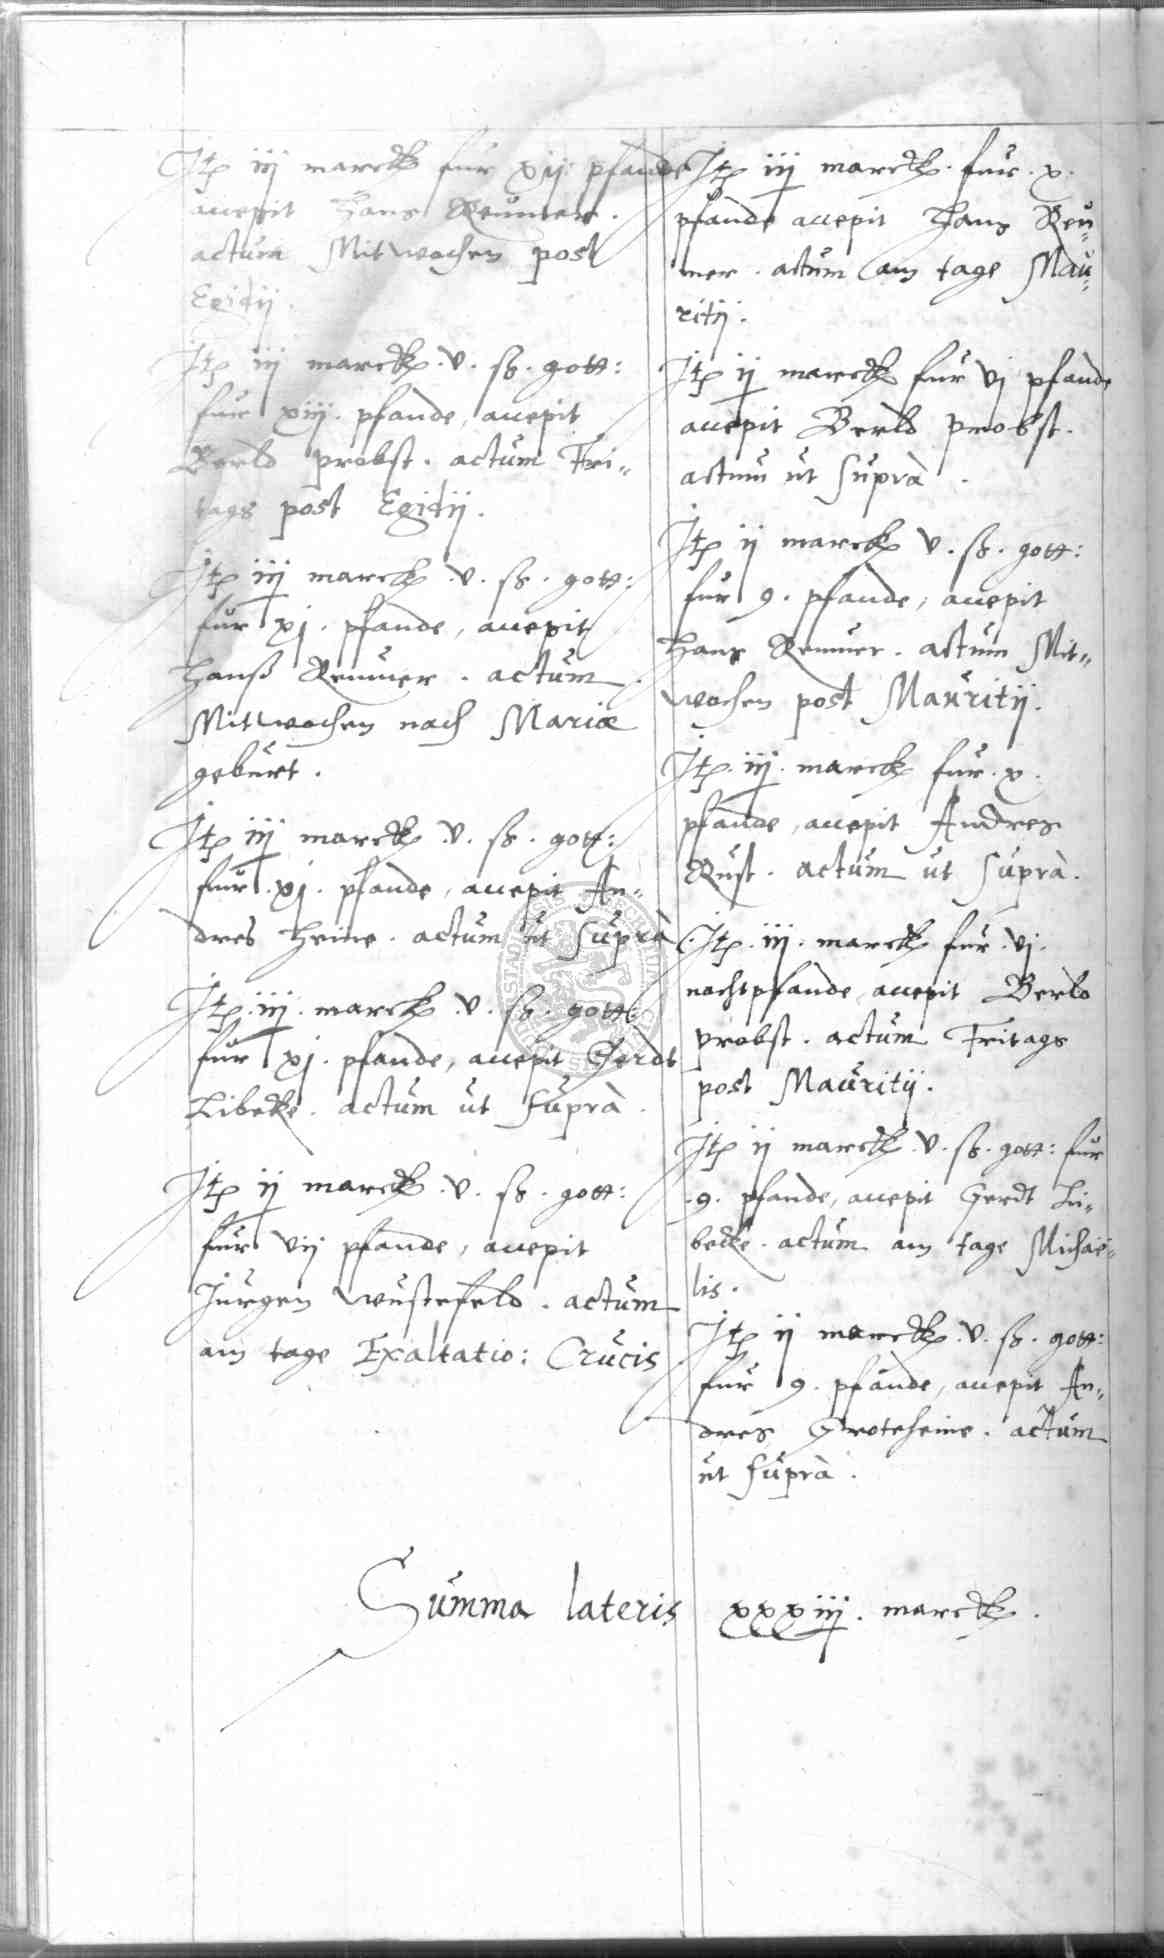 Jtem iij marck fur xij pfande
accepit Hans Reumer.
actum Mitwochen post
Egidij.
Jtem iij marck. v. ß. gott:
fur xiij. pfande, accepit
Berld probst. actum Fri„
tags post Egidij.
Jtem iij marck. v. ß. gott:
fur xj. pfande, accepit
Hanß Reumer. actum
Mitwochen nach Mariæ
geburt.
Jtem iij marck. v. ß. gott:
fur. xj. pfande, accepit An„
dres Heine. actum ut suprà
Jtem. iij. marck. v. ß. gott:
fur xj. pfande, accepit Gerdt
Libecke. actum ut suprà.
Jtem ij marck. v. ß. gott:
fur vij pfande, accepit
Jurgen Wustefeld. actum
am tage Exaltatio: Crucis
Jtem iij marck. fur. x.
pfande accepit Hans Reu„
mer. actum am tage Mau„
ritij.
Jtem ij marck fur vj pfande
accepit Berld probst.
actum ut suprà.
Jtem ij marck v. ß. gott:
fur 9. pfande, accepit
Hans Reumer. actum Mit„
wochen post Mauritij.
Jtem. iij. marck fur. x.
pfande, accepit Andres
Rust. actum ut suprà.
Jtem. iij. marck fur. vj.
nachtpfande, accepit Berld
probst. actum Fritags
post Mauritij.
Jtem ij marck. v. ß. gott: fur
9. pfande, accepit Gerdt Li„
becke. actum am tage Michae„
lis.
Jtem ij marck. v. ß. gott:
fur 9. pfande, accepit An„
dres Groteheine. actum
ut suprà.
Summa lateris xxxiij. marck.